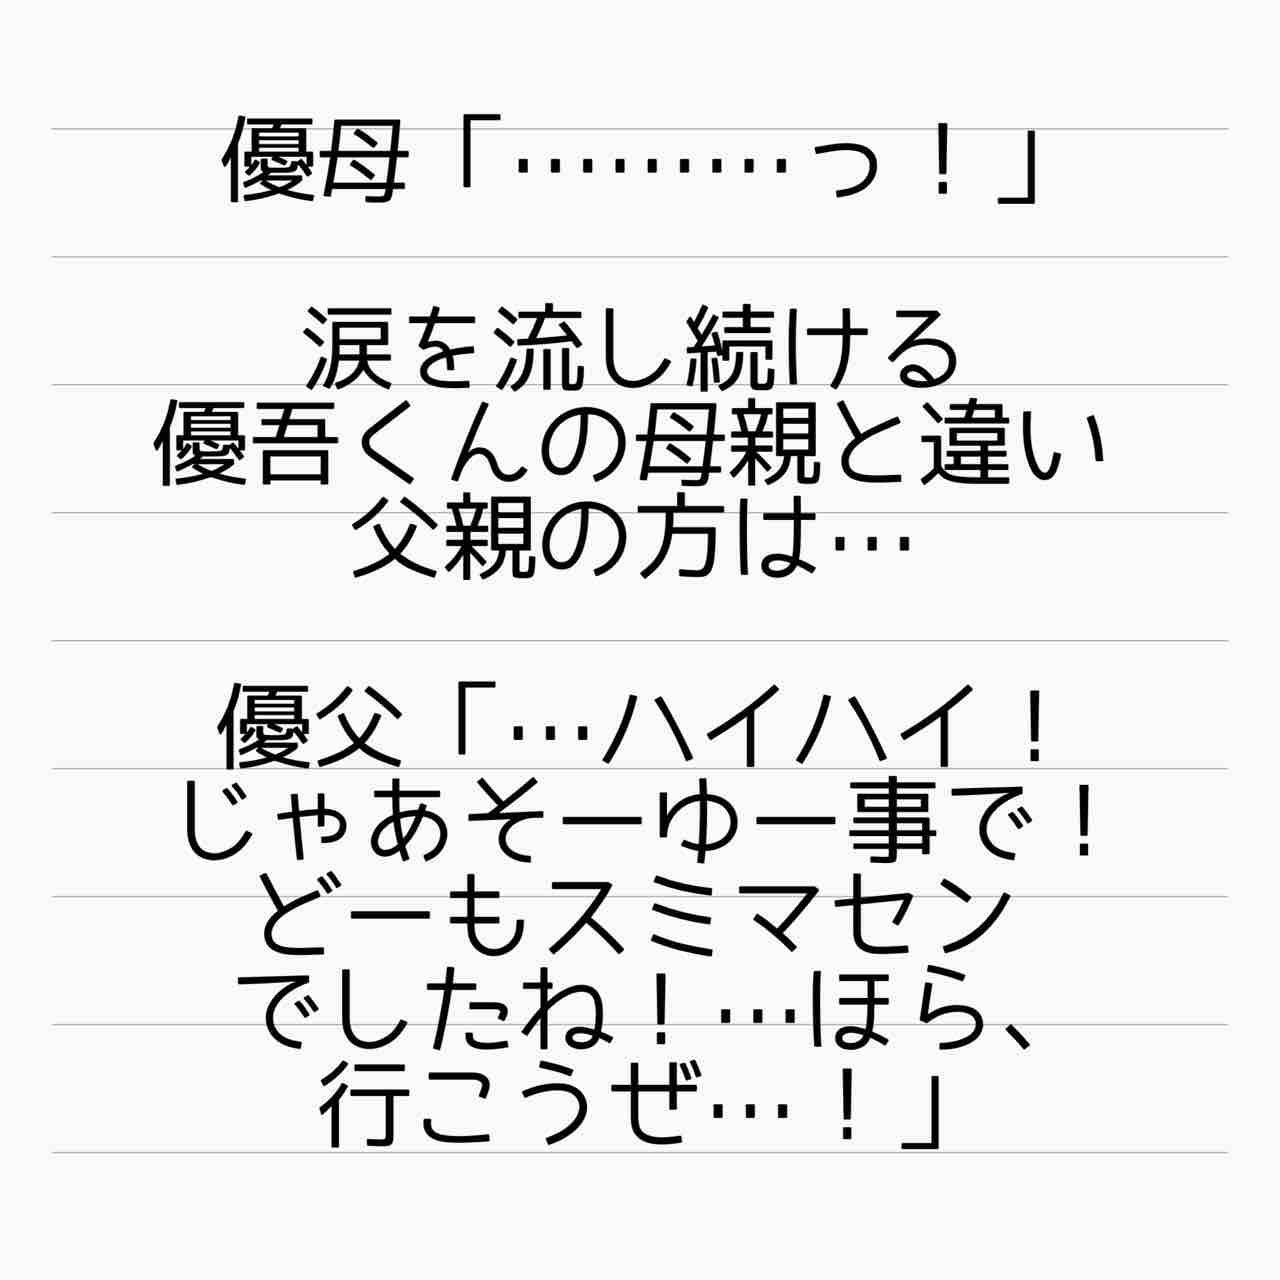 優母「………っ！」
涙を流し続ける
優吾くんの母親と違い
父親の方は…
優父「…ハイハイ！
じゃあそーゆー事で！
どーもスミマセン
でしたね！…ほら、
行こうぜ…！」